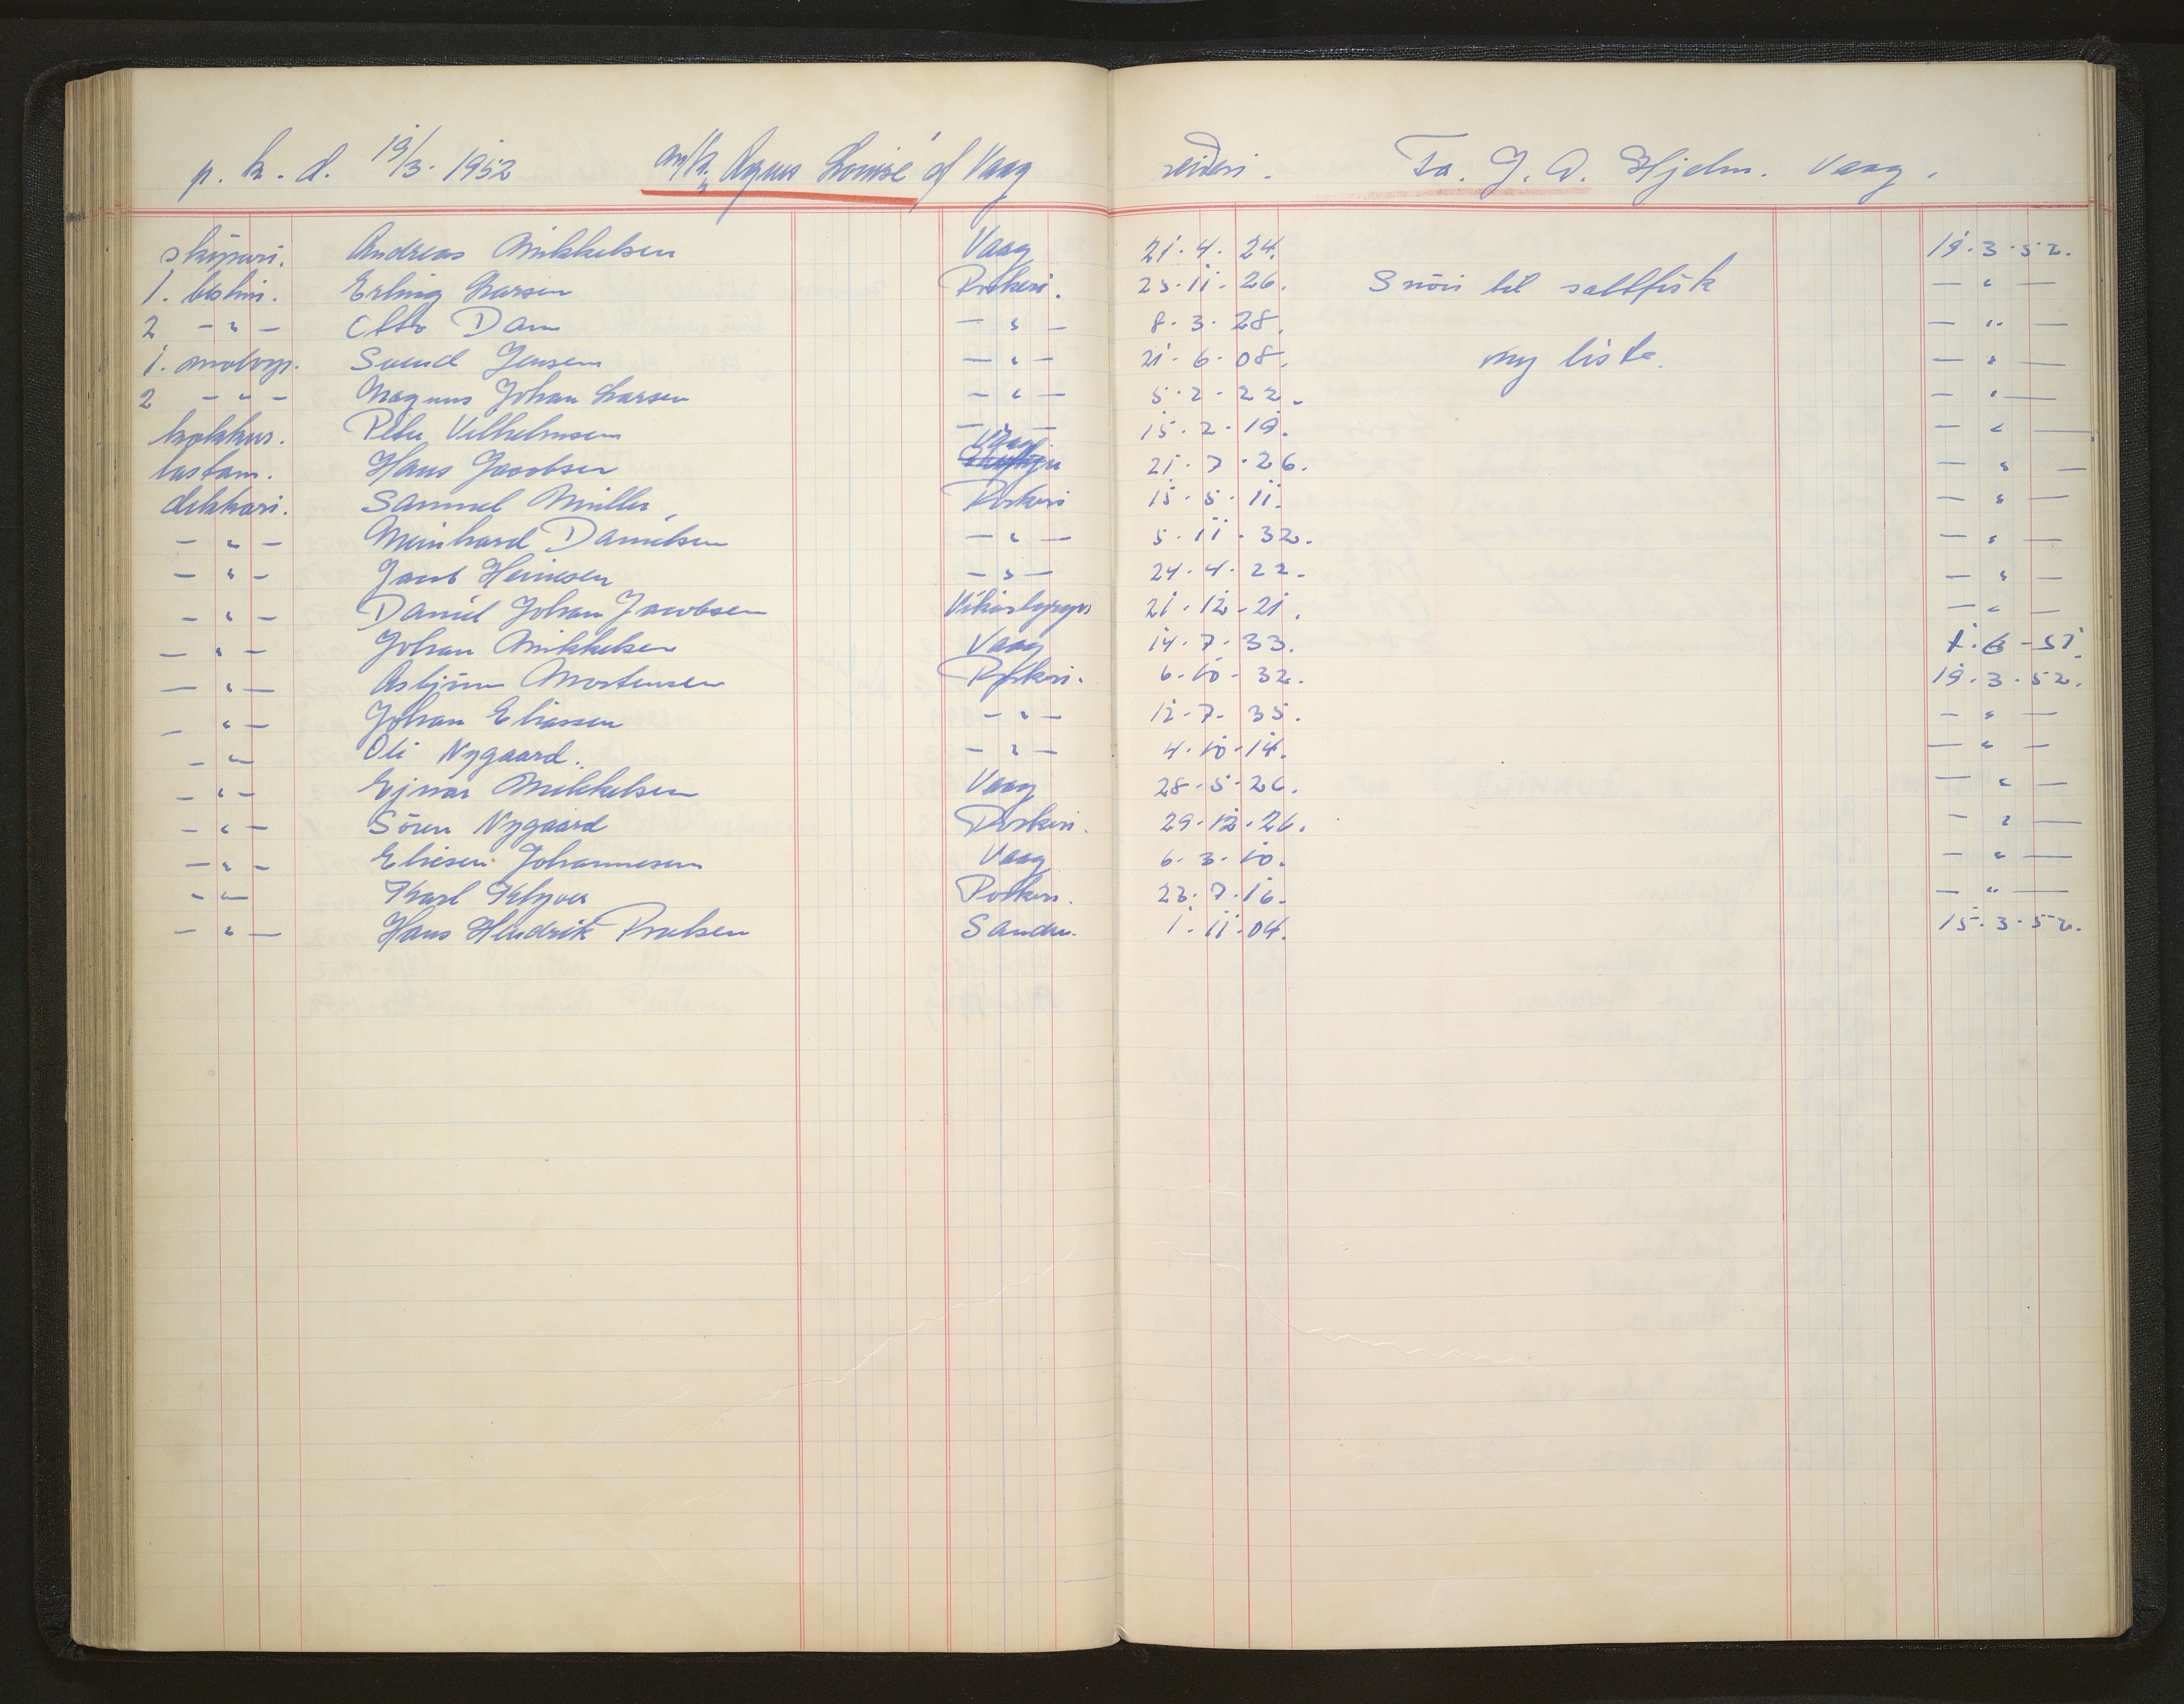 p. h. d. 19/3. 1952 m/k. "Agnes Louise" of Vaag reideri. Fa. J. D. Hjelm. Vaag.
skipari. Andreas Mikkelsen Vaag 21. 4. 24. 19. 3. 52.
1. bestm. Erling Larsen Porkeri. 23. 11. 26. Snöri til saltfisk — " —
2 — " — Otto Dam — " — 8. 3. 28. — " —
1. motorp. Svend Jensen — " — 21. 6. 08. ny liste. — " —
2 — " — Magnus Johan Larsen — " — 5. 2. 22. — " —
kokkur. Peter Vilhelmsen — " — 15. 2. 19. — " —
lastam. Hans Jacobsen Vaag 21. 7. 26. — " —
dekkari. Samuel Müller Porkeri 15. 5. 11. — " —
— " — Meinhard Danielsen — " — 5. 11. 32. — " —
— " — Jacob Heinesen — " — 24. 4. 22. — " —
— " — Daniel Johan Jacobsen Vikarbyrgi 21. 12. 21. — " —
— " — Johan Mikkelsen Vaag 14. 7. 33. 1. 6 - 51.
— " — Asbjörn Mortensen Porkeri. 6. 10. 32. 19. 3. 52.
— " — Johan Eliassen — " — 12. 7. 35. — " —
— " — Oli Nygaard. — " — 4. 10. 14. — " —
— " — Ejnar Mikkelsen Vaag 28. 5. 26. — " —
— " — Sören Nygaard Porkeri. 29. 12. 26. — " —
— " — Eliesen Johannesen Vaag 6. 3. 10. — " —
— " — Karl Klyver Porkeri. 23. 7. 16. — " —
— " — Hans Hendrik Poulsen Sandur. 1. 11. 04. 15. 3. 52.